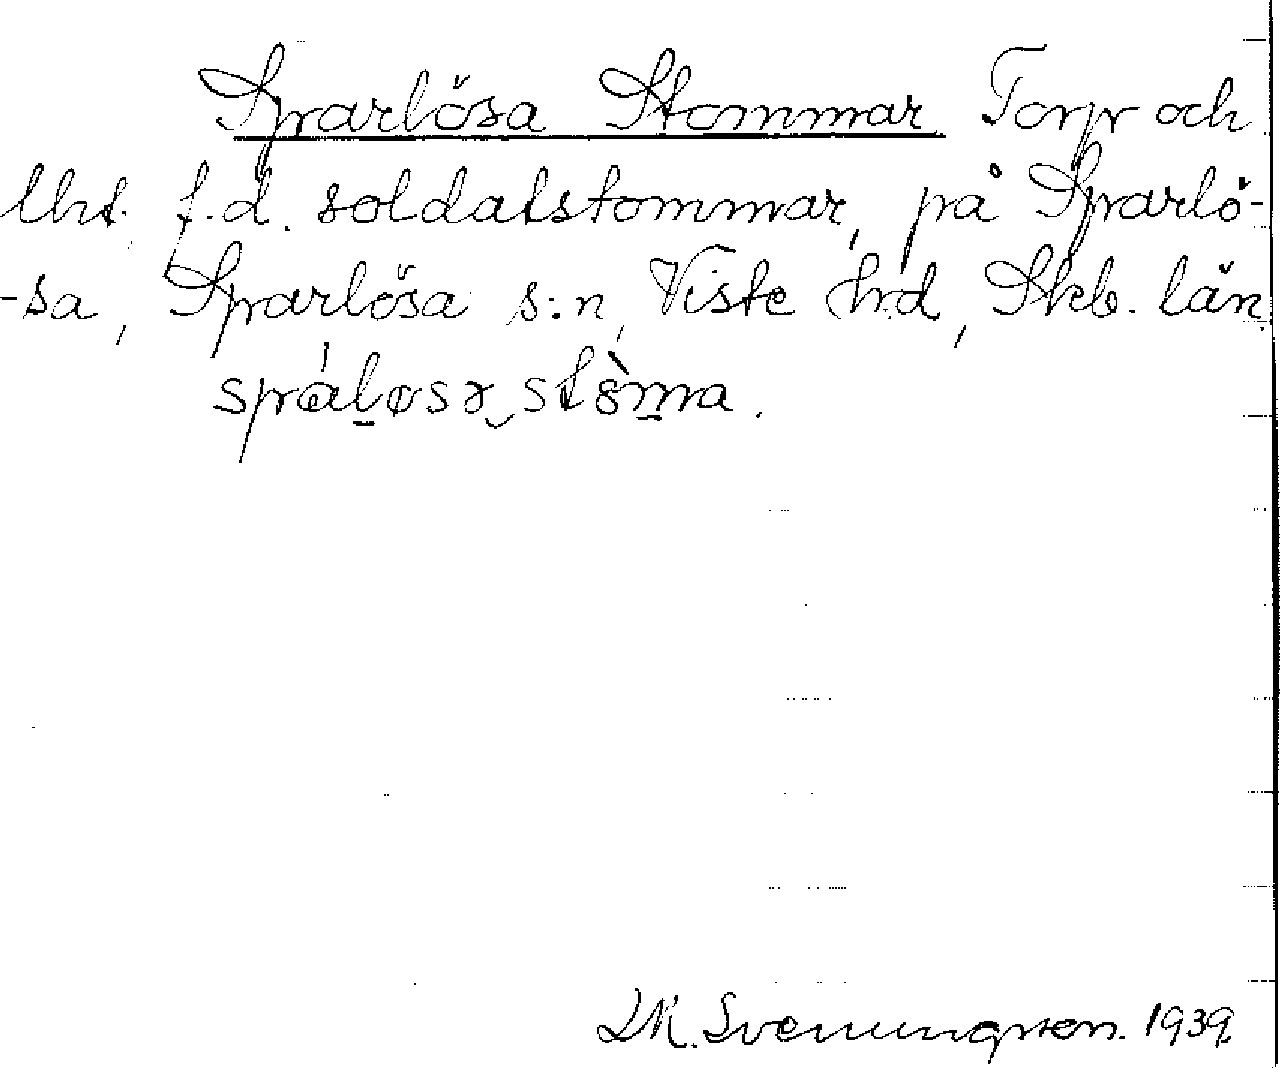 Sparlösa Stommar Torp och
lht. f.d. soldatstommar, på Sparlö-
-sa, Sparlösa s:n, Viste hrd, Skb. län.
Svenungsson. 1939.